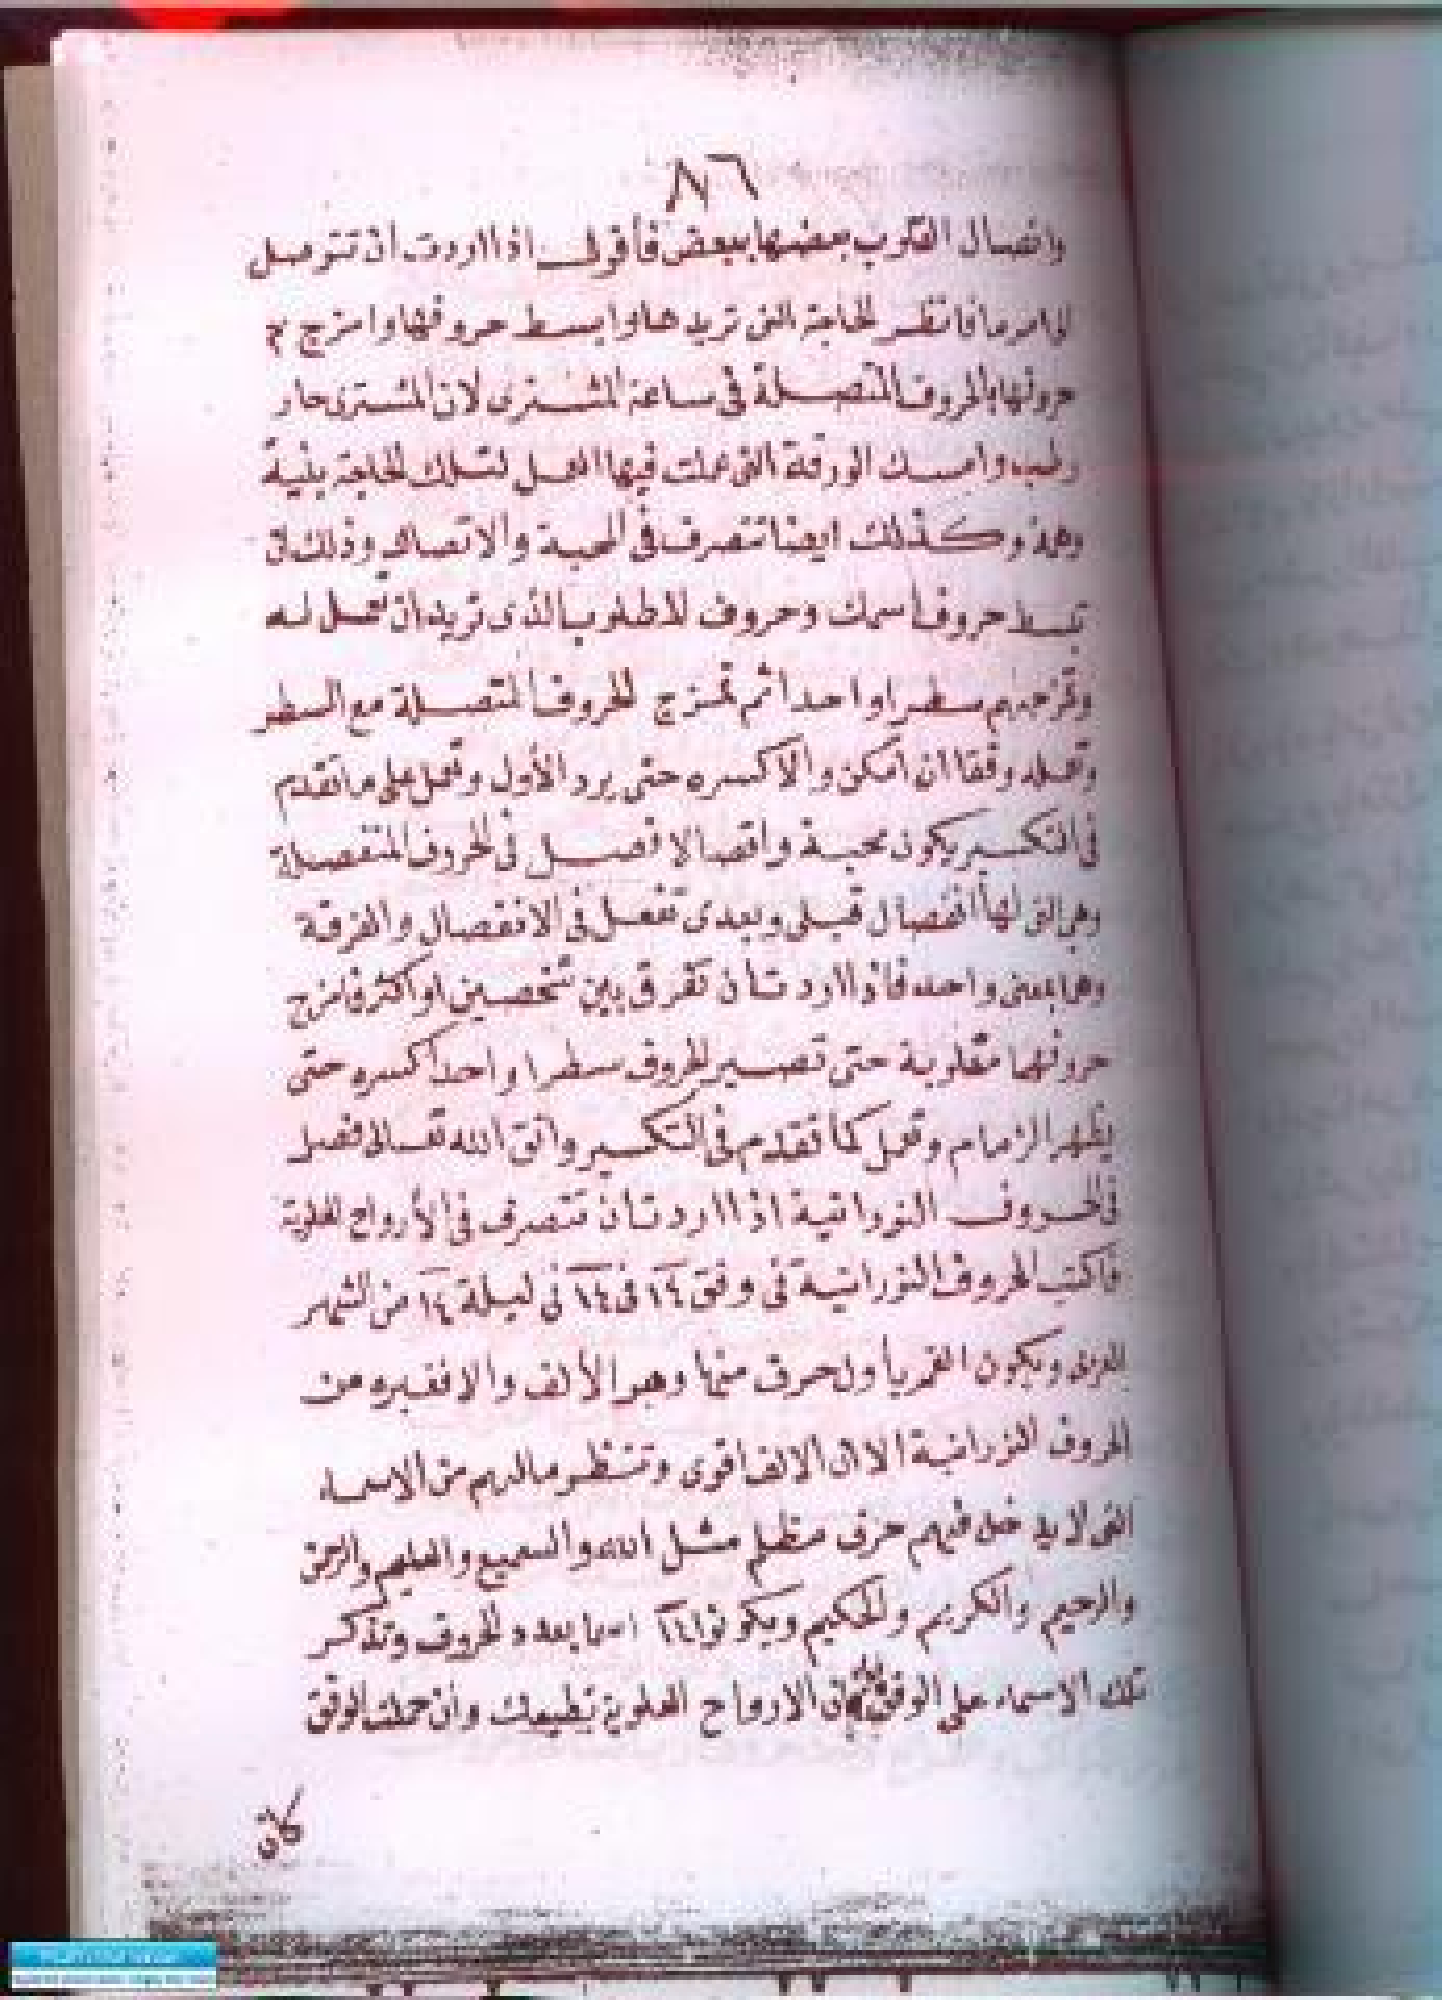 ٨٦
واتصال القلوب بعضها ببعض فأقول اذا اردت ان تتوصل
لامر ما فانظر لحاجة التى تريدها وابسط حروفها وامزج
حروفها بالحروف المتصلة فى ساعة المشترى لان المشترى حار
رطب وامسك الورقة التى عملت فيها العمل لتلك الحاجة بنية
وهمة وكذلك ايضا تتصرف فى المحبة والاتصال وذلك ان
تبسط حروف اسمك وحروف المطلوب الذى تريد ان تعمل له
وتمزجهم سطرا واحدا ثم تمزج الحروف المتصلة مع السطر
وتعمله وفقا ان امكن والا كسره حتى يرد الأول وتعمل على ما تقدم
فى التكسير يكون محبة واتصالا فصل فى الحروف المنفصلة
وهى التى لها انفصال قبلى وبعدى تفعل فى الانفصال والفرقة
وهما بمعنى واحد فاذا اردت أن تفرق بين شخصين او اكثر فامزج
حروفهما مقلوبة حتى تصير الحروف سطرا واحدا كسره حتى
يظهر الزمام وتعمل كما تقدم فى التكسير واتق الله تعالى فصل
فى الحروف النورانية اذا اردت أن تتصرف فى الأرواح العلوية
فاكتب الحروف النورانية فى وفق ١٤ فى ١٤ فى ليلة ١٤ من الشهر
العربى ويكون القمر بأول حرف منها وهو الألف والا فغيره من
الحروف النورانية الا ان الالف اقوى وتنظر ما لهم من الاسماء
التى لا يدخل فيهم حرف مظلم مثل الله والسميع والعليم والرحمن
والرحيم والكريم والحكيم ويكونوا ١٤ اسما بعدد الحروف وتذكر
تلك الاسماء على الوفق فان الارواح العلوية تطيعك وان حملت الوفق
كان